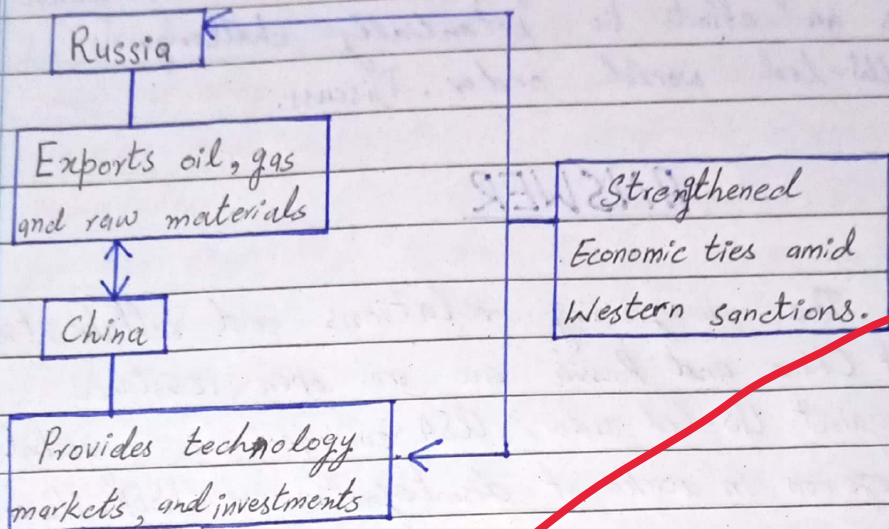 Russia
Exports oil, gas
and raw materials
China
Provides technology
markets, and investments
Strengthened
Economic ties amid
Western sanctions.